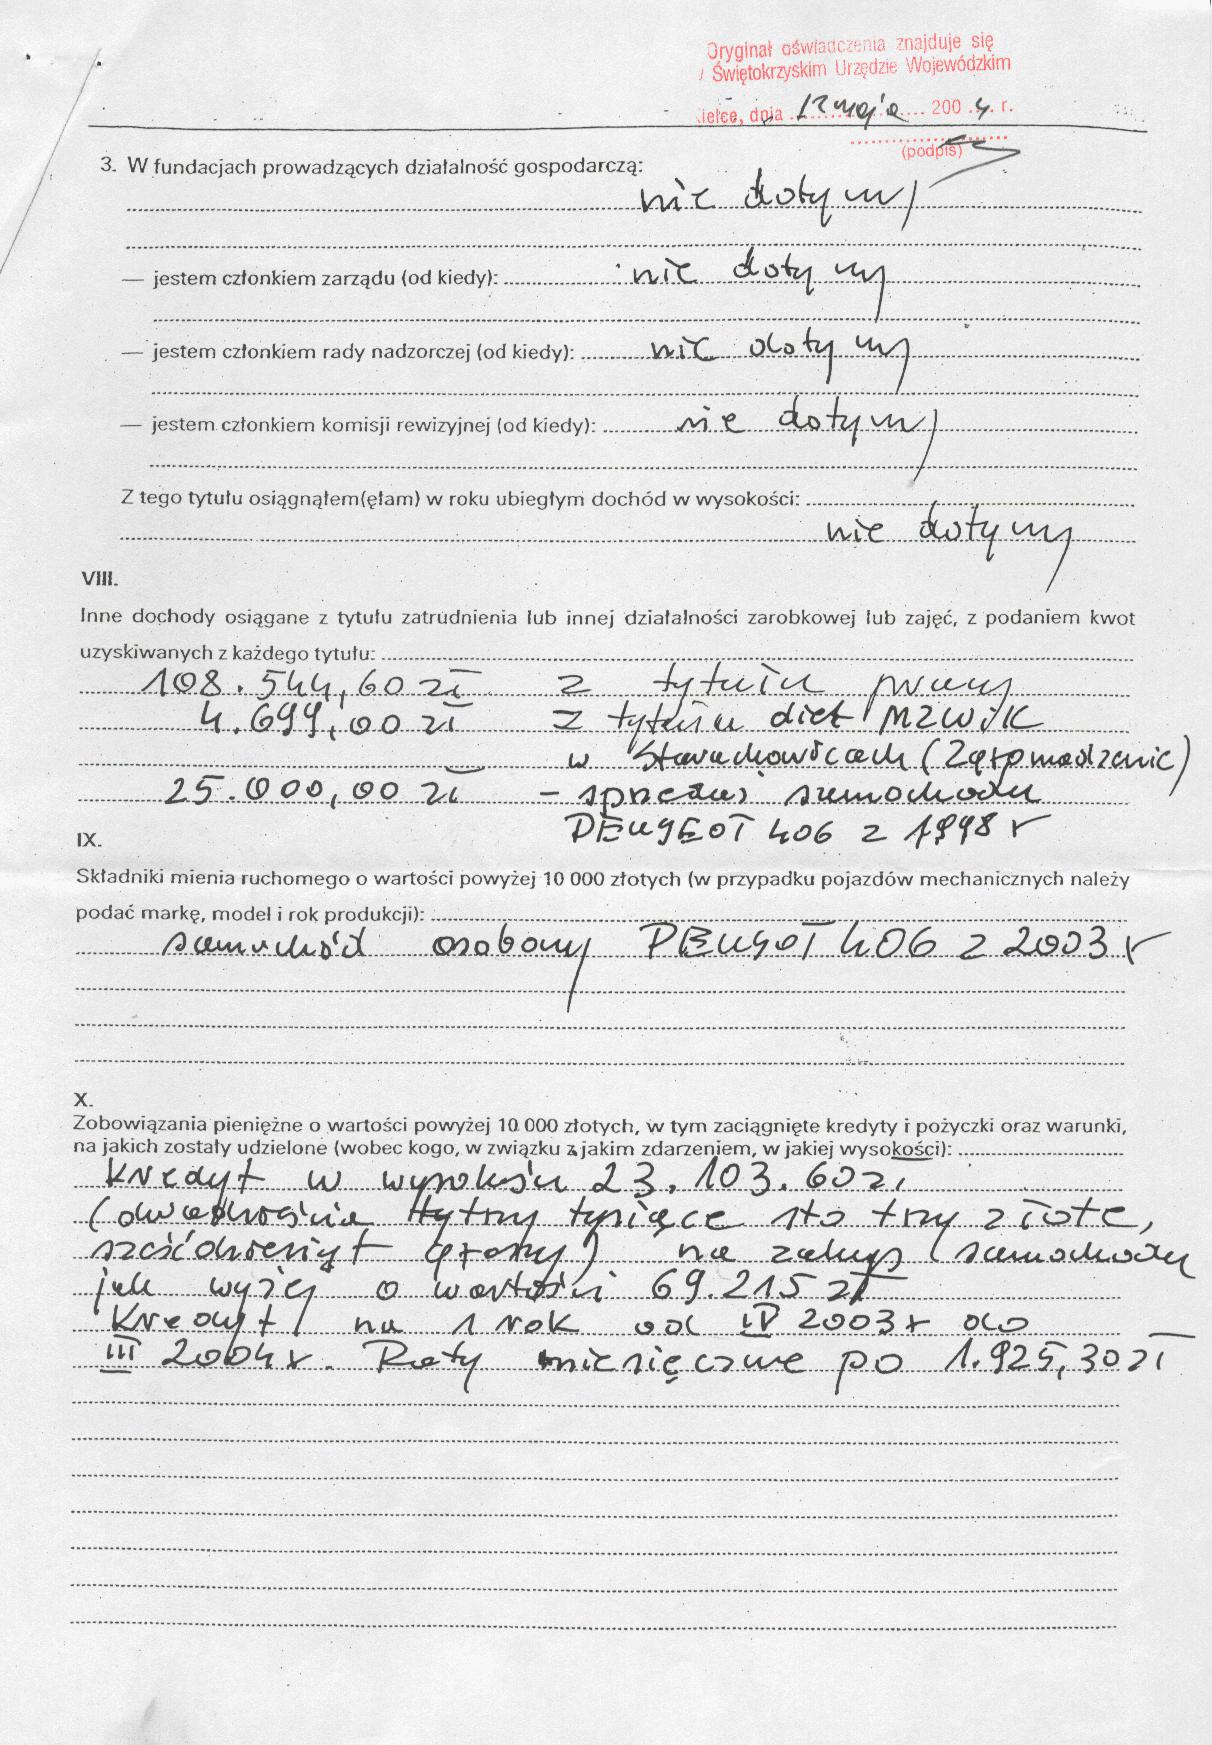 Oryginał oświadczenia znajduje się
Świętokrzyskim Urzędzie Wojewódzkim
ielce, dnia 12 maja 2004 r.
(podpis)
3. W fundacjach prowadzących działalność gospodarczą:
nie dotyczy
— jestem członkiem zarządu (od kiedy): nie dotyczy
— jestem członkiem rady nadzorczej (od kiedy): nie dotyczy
— jestem członkiem komisji rewizyjnej (od kiedy): nie dotyczy
Z tego tytułu osiągnąłem(ęłam) w roku ubiegłym dochód w wysokości:
nie dotyczy
VIII.
Inne dochody osiągane z tytułu zatrudnienia lub innej działalności zarobkowej lub zajęć, z podaniem kwot
uzyskiwanych z każdego tytułu:
108.544,60 zł z tytułu pracy
4.699,00 zł z tytułu diet MZWiK
w Starachowicach (Zgromadzenie)
25.000,00 zł - sprzedaż samochodu
PEUGEOT 406 z 1998 r
IX.
Składniki mienia ruchomego o wartości powyżej 10 000 złotych (w przypadku pojazdów mechanicznych należy
podać markę, model i rok produkcji):
samochód osobowy PEUGEOT 406 z 2003 r
X.
Zobowiązania pieniężne o wartości powyżej 10 000 złotych, w tym zaciągnięte kredyty i pożyczki oraz warunki,
na jakich zostały udzielone (wobec kogo, w związku z jakim zdarzeniem, w jakiej wysokości):
Kredyt w wysokości 23.103.60 zł
(dwadzieścia trzy tysiące sto trzy złote,
sześćdziesiąt groszy) na zakup samochodu
jak wyżej o wartości 69.215 zł
Kredyt na 1 rok od IV 2003 r do
III 2004 r. Raty miesięczne po 1.925,30 zł